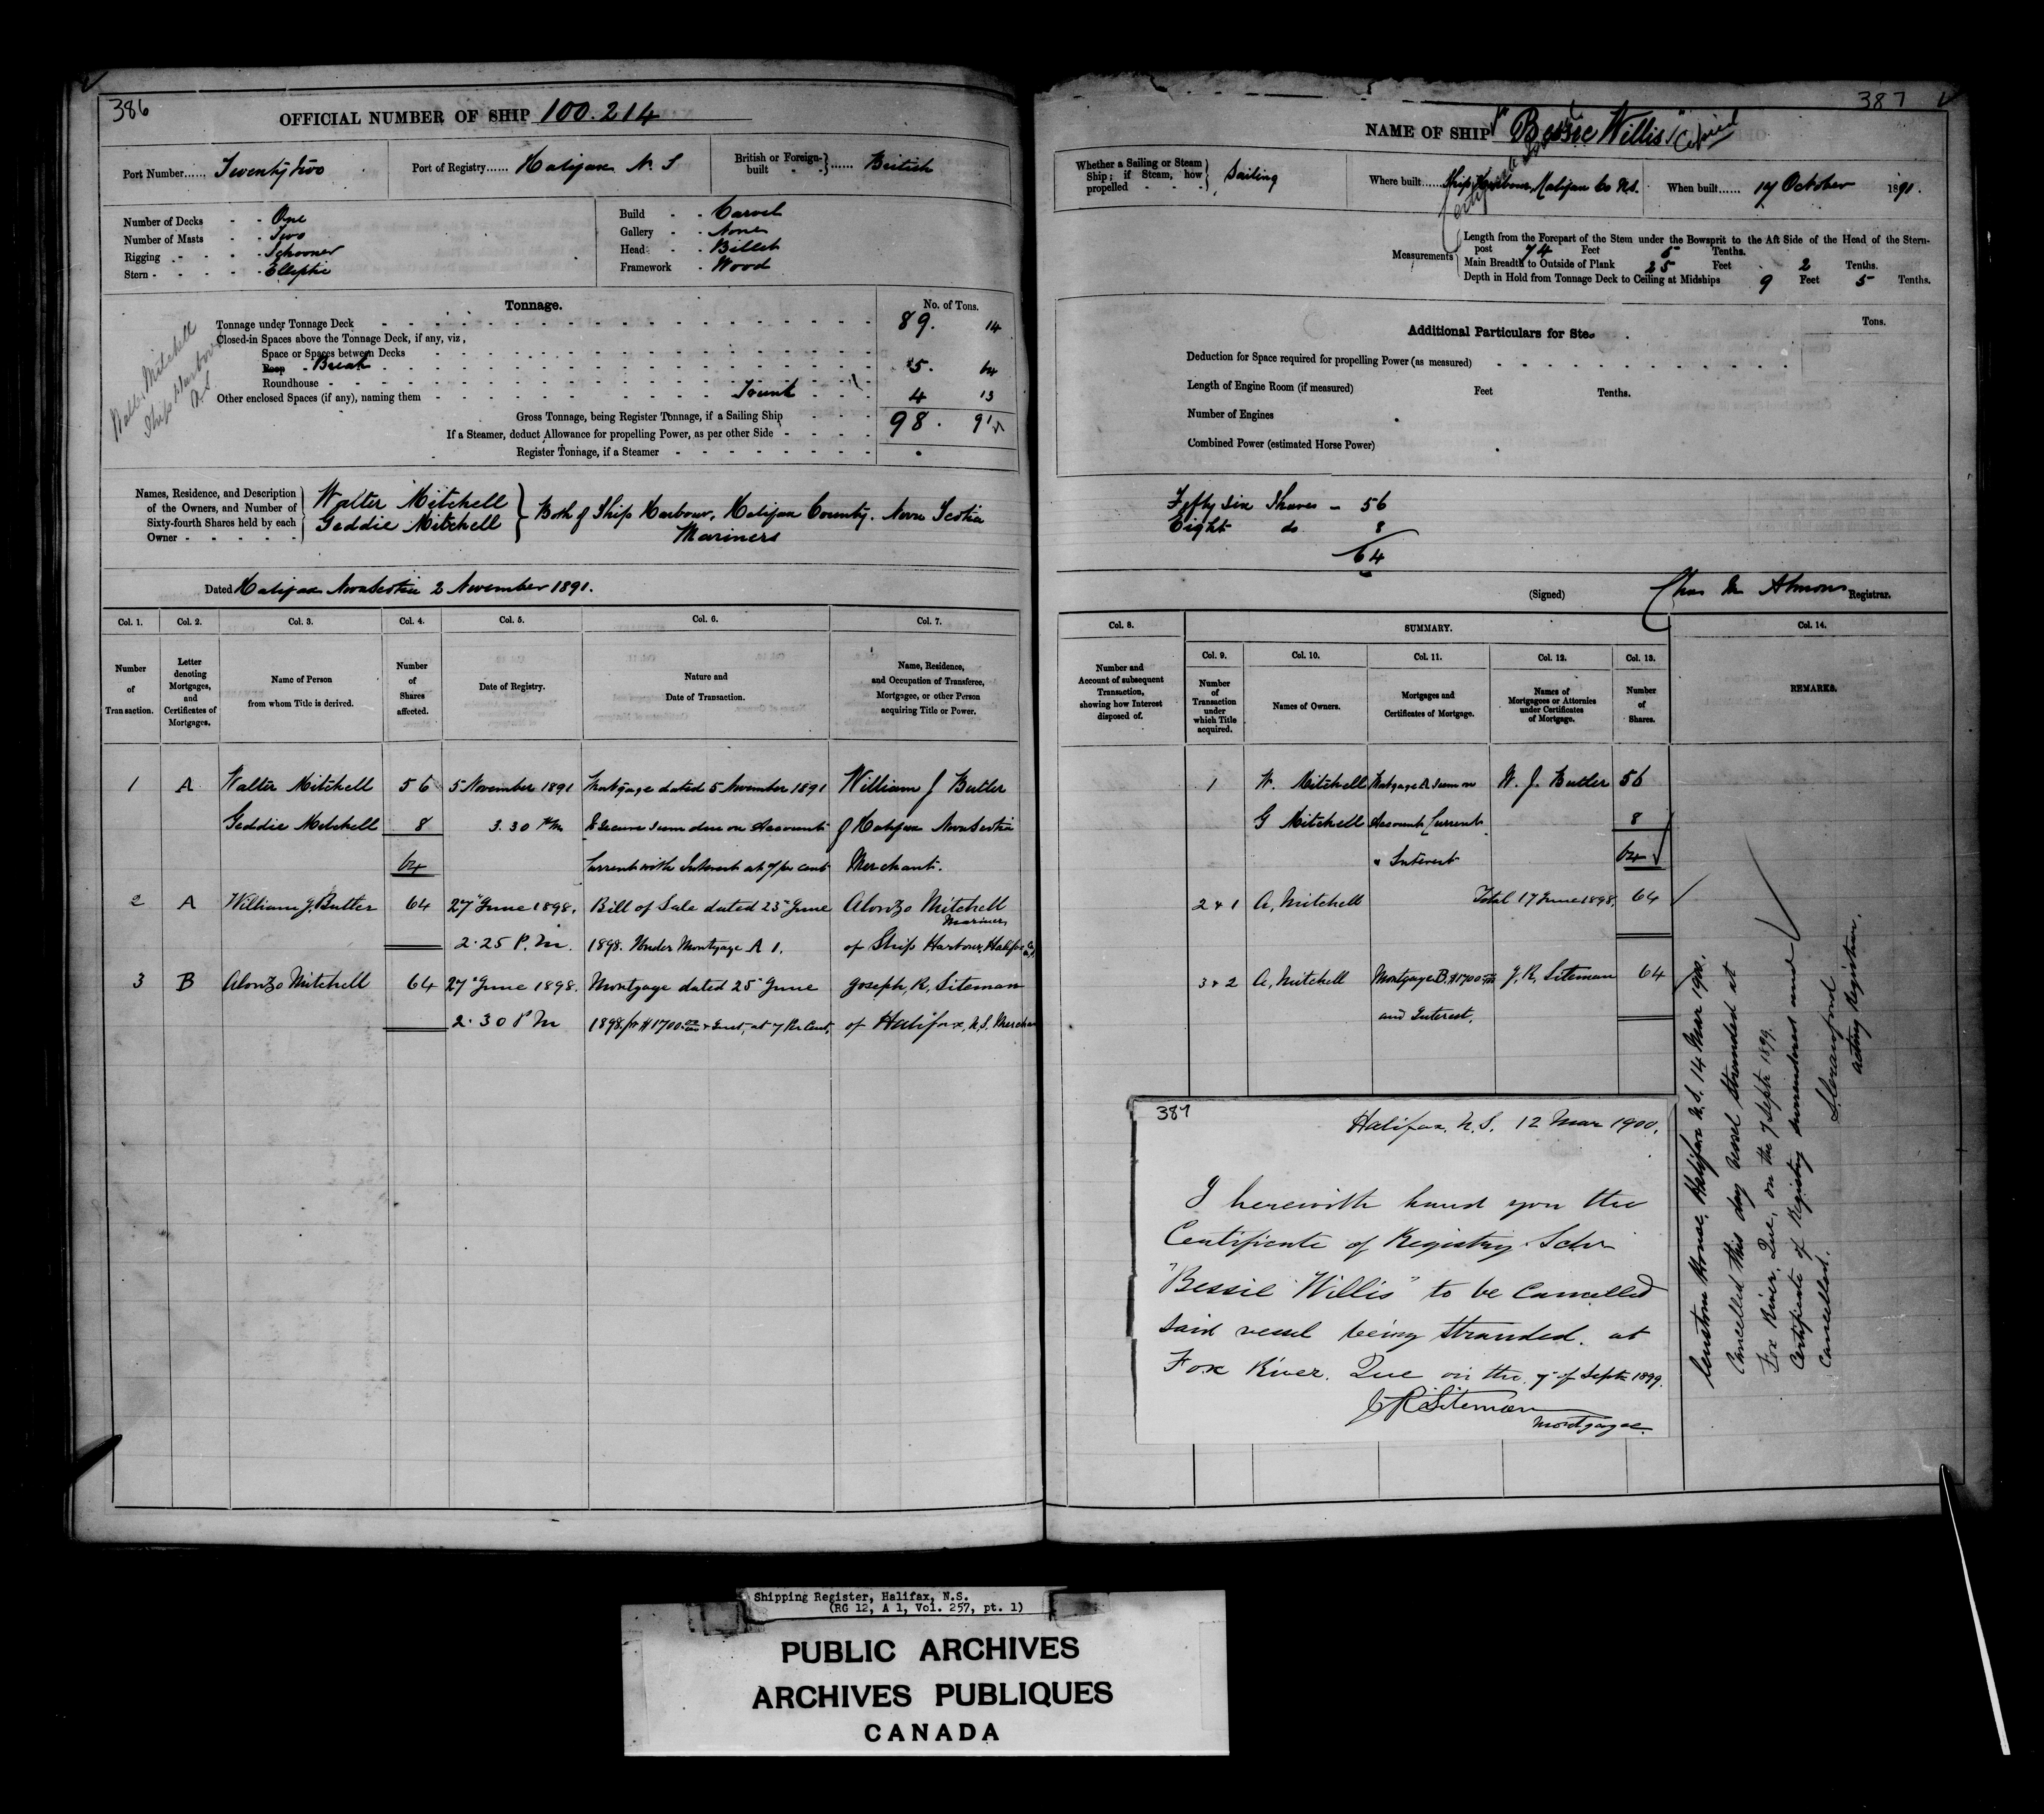 386
OFFICIAL NUMBER OF SHIP 100.214
Port Number...... Twenty two
Port of Registry...... Halifax N. S
British or Foreign-built ...... British
Number of Decks - - One
Number of Masts - - Two
Rigging - - - - Schooner
Stern - - - - - Elliptic
Build - - Carvel
Gallery - - None
Head - - Billet
Framework - Wood
Tonnage.
No. of Tons.
Tonnage under Tonnage Deck 89. 14
Closed-in Spaces above the Tonnage Deck, if any, viz,
Space or Spaces between Decks
Poop - Break 5. 64
Roundhouse
Other enclosed Spaces (if any), naming them Trunk 4 13
Gross Tonnage, being Register Tonnage, if a Sailing Ship 98. 91
If a Steamer, deduct Allowance for propelling Power, as per other Side
Register Tonnage, if a Steamer
Walter Mitchell
Ship Harbour
N.S
Names, Residence, and Description of the Owners, and Number of Sixty-fourth Shares held by each Owner - - - - -
Walter Mitchell
Geddie Mitchell
Both of Ship Harbour, Halifax County. Nova Scotia
Mariners
Dated Halifax Nova Scotia 2 November 1891.
Col. 1. Col. 2. Col. 3. Col. 4. Col. 5. Col. 6. Col. 7.
Number of Transaction.
Letter denoting Mortgages, and Certificates of Mortgages.
Name of Person from whom Title is derived.
Number of Shares affected.
Date of Registry.
Nature and Date of Transaction.
Name, Residence, and Occupation of Transferee, Mortgagee, or other Person acquiring Title or Power.
1 A Walter Mitchell 56 5 November 1891 Mortgage dated 5 November 1891 William J Butler
Geddie Mitchell 8 3.30 PM To Secure Sum due on Account of Halifax Nova Scotia
64 Current with Interest at 7 per cent Merchant.
2 A William J. Butler 64 27" June 1898. Bill of Sale dated 23" June Alonzo Mitchell
Mariner
2.25 P.M. 1898. Under Mortgage A 1. of Ship Harbour, Halifax Co
3 B Alonzo Mitchell 64 27" June 1898. Mortgage dated 25" June Joseph, R, Siteman
2.30 PM 1898 for $1700 00/100 & Inst, at 7 Per Cent, of Halifax, N.S. Merchan
387
NAME OF SHIP "Bessie Willis"
Copied
Whether a Sailing or Steam Ship; if Steam, how propelled - - - Sailing
Where built...... Ship Harbour, Halifax Co N.S.
When built...... 17 October 1891.
Measurements
Length from the Forepart of the Stem under the Bowsprit to the Aft Side of the Head of the Stern-
post 74 Feet 5 Tenths.
Main Breadth to Outside of Plank 25 Feet 2 Tenths.
Depth in Hold from Tonnage Deck to Ceiling at Midships 9 Feet 5 Tenths.
Additional Particulars for Ste
Tons.
Deduction for Space required for propelling Power (as measured)
Length of Engine Room (if measured) Feet Tenths.
Number of Engines
Combined Power (estimated Horse Power)
Fifty six Shares - 56
Eight do 8
64
(Signed) Registrar.
Col. 8.
SUMMARY.
Col. 14.
Col. 9. Col. 10. Col. 11. Col. 12. Col. 13.
Number and Account of subsequent Transaction, showing how Interest disposed of.
Number of Transaction under which Title acquired.
Names of Owners.
Mortgages and Certificates of Mortgage.
Names of Mortgagees or Attornies under Certificates of Mortgage.
Number of Shares.
REMARKS.
1 W. Mitchell Mortgage A Sum on W. J. Butler 56
G Mitchell Account Current 8
& Interest 64
2 & 1 A. Mitchell Total 17 June 1898. 64
3 & 2 A. Mitchell Mortgage B. $1700 00/100 J. R. Siteman 64
and Interest.
387
Halifax, N.S. 12 Mar 1900.
I herewith hand you the
Certificate of Registry Schr
"Bessie Willis" to be Cancelled
said vessel being stranded. at
Fox River. Que on the 7" of Septr 1899.
J R Siteman
Mortgagee.
Custom House, Halifax N.S. 14 Mar 1900.
Cancelled this day vessel stranded at
Fox River, Que, on the 7 Septr 1899.
Certificate of Registry surrendered and
Cancelled.
S. Crawford
Acting Registrar.
Shipping Register, Halifax, N.S.
(RG 12, A 1, Vol. 257, pt. 1)
PUBLIC ARCHIVES
ARCHIVES PUBLIQUES
CANADA